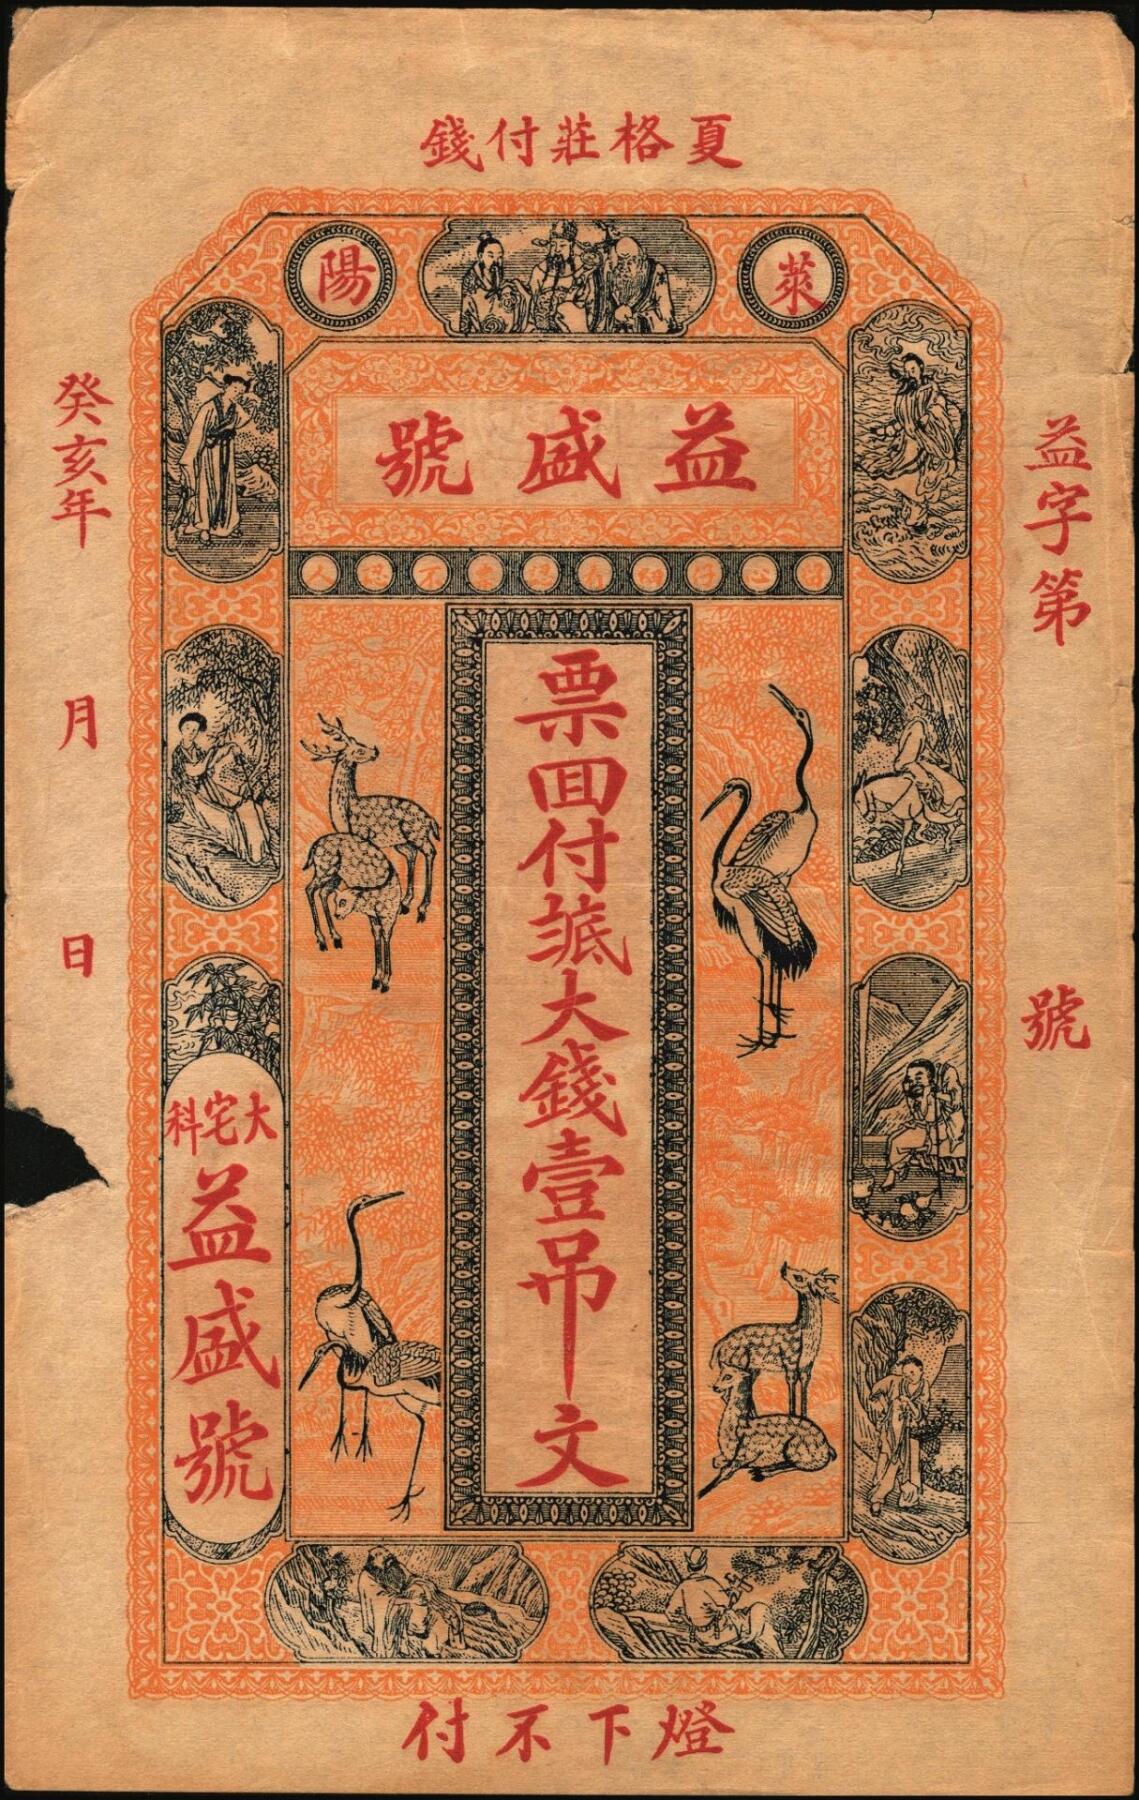 夏格莊付錢
萊陽
益盛號
益字第 號
票囬付大錢壹吊文
癸亥年 月 日
大宅科
益盛號
燈下不付